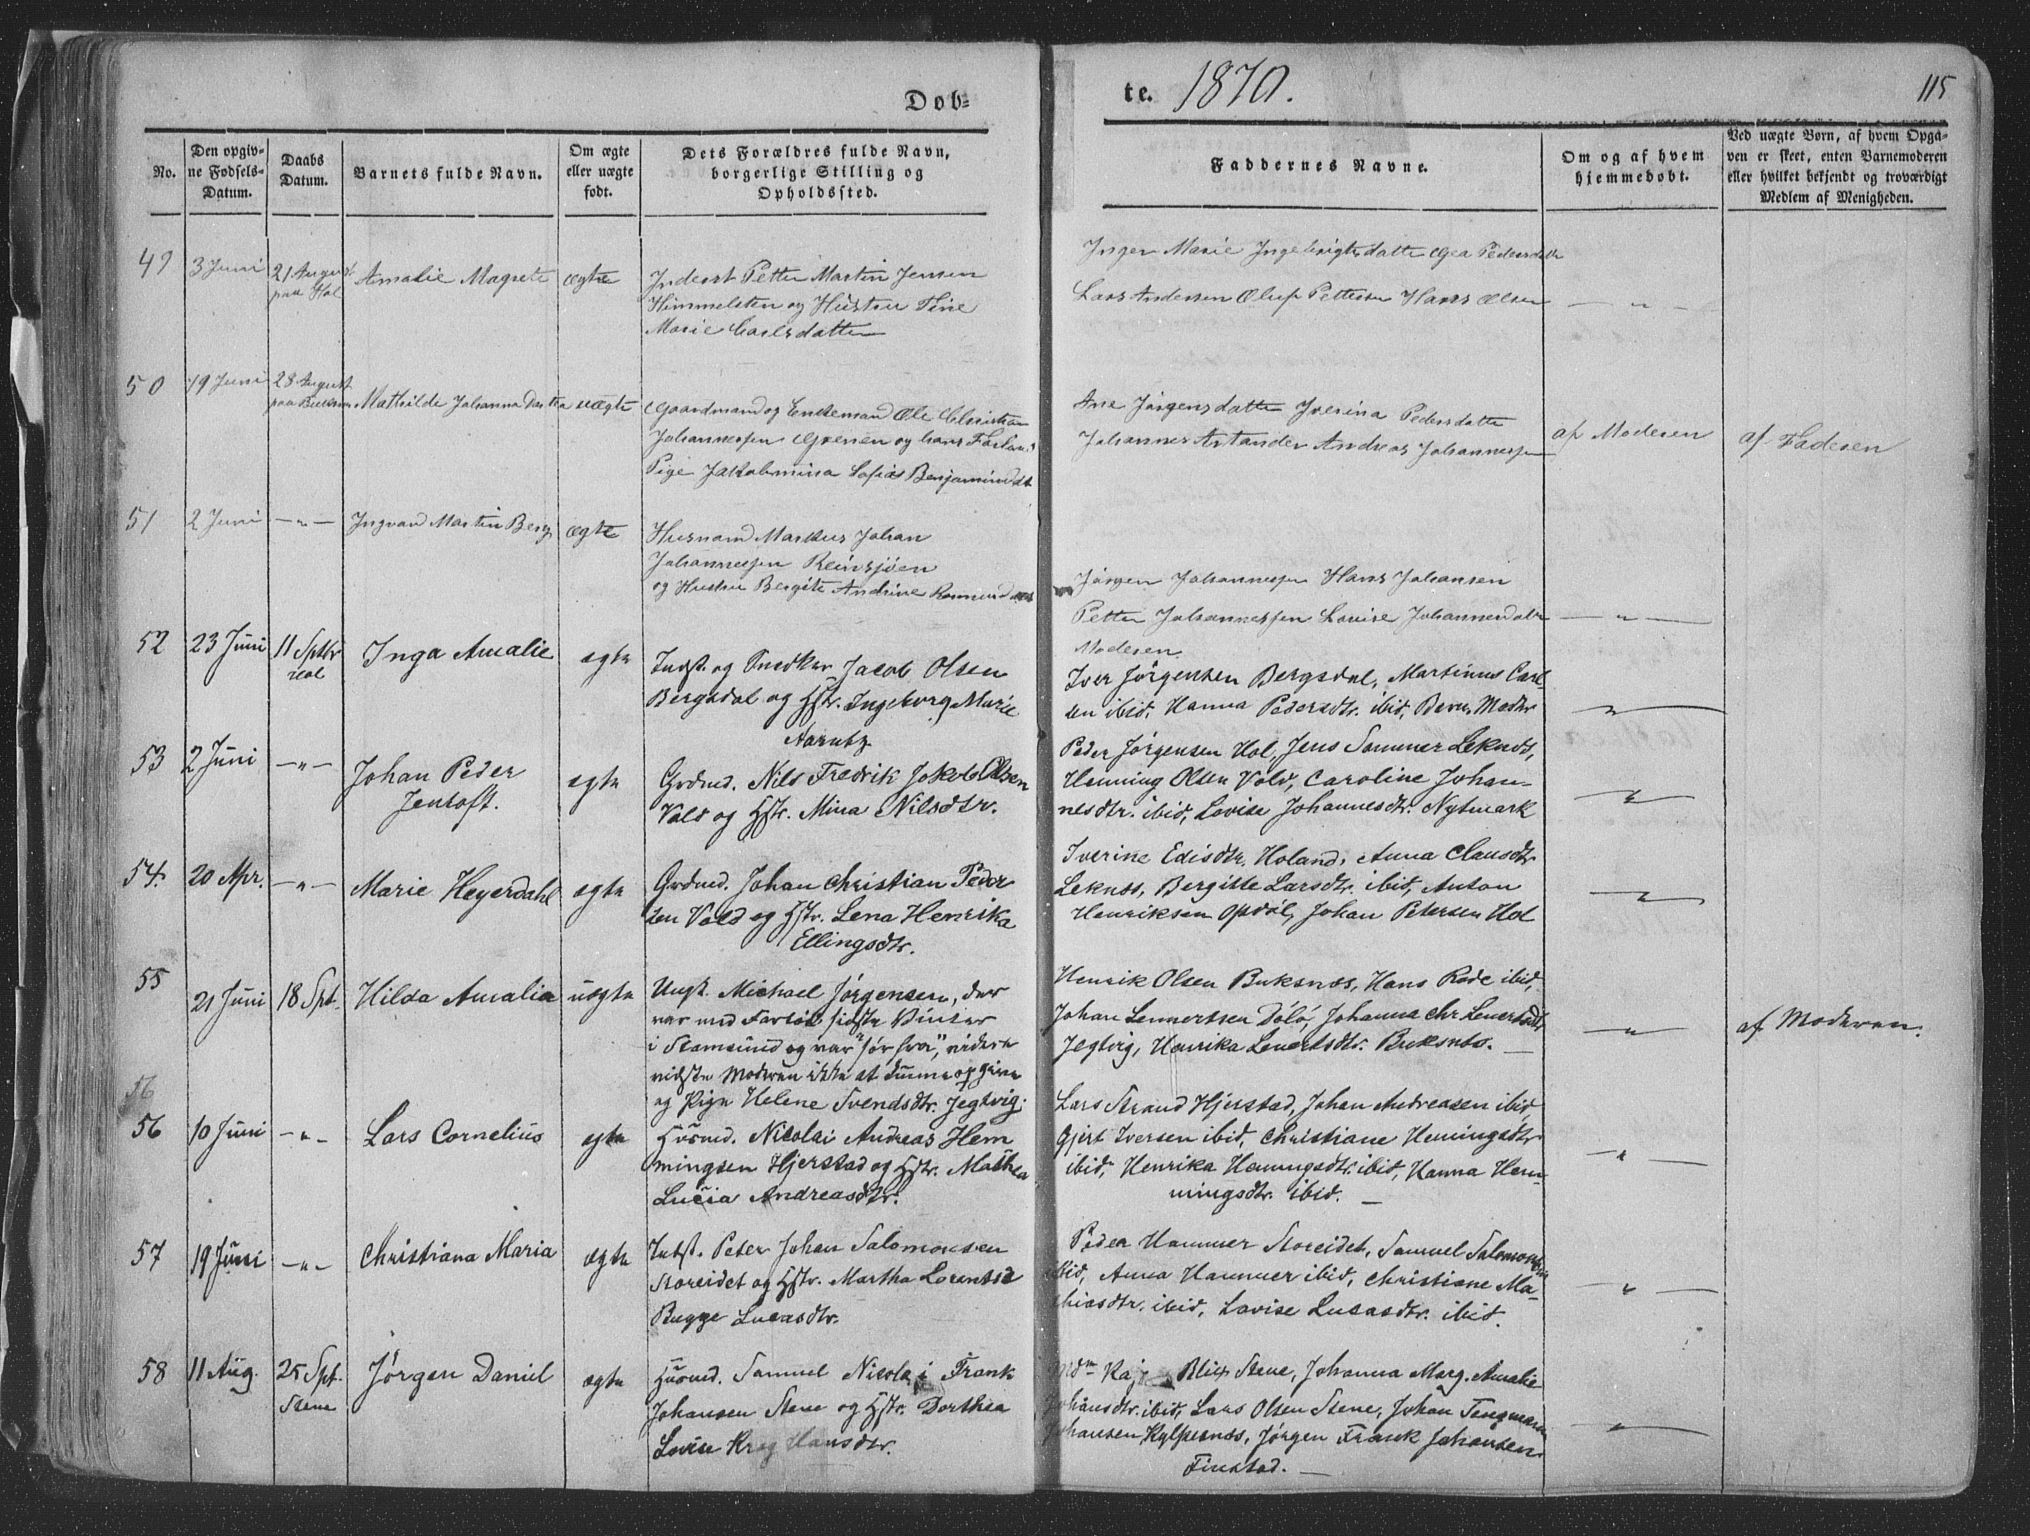 Døb=
te. 1870.
115
No.
Den opgiv-
ne Fødsels-
Datum.
Daabs
Datum.
Barnets fulde Navn.
Om ægte
eller uægte
født.
Dets Forældres fulde Navn,
borgerlige Stilling og
Opholdssted.
Faddernes Navne.
Om og af hvem
hjemmedøbt.
Ved uægte Børn, af hvem Opga-
ven er skeet, enten Barnemoderen
eller hvilket bekjendt og troværdigt
Medlem af Menigheden.
49
3 Juni
21 August
paa Hol
Amalie Magrete
ægte
Inderst Petter Martin Jensen
Himmelsten og Hustru Tine
Marie Carlsdatter
Inger Marie Ingebrigtsdatter Gea Pedersdatter
Lars Andersen Oluf Pettersen Hans Olsen
— " —
50
19 Juni
28 August
paa Buksnes
Mathilde Johanna
uægte
Gaardmand og Enkemand Ole Christian
Johannessen og hans
Pige Jakobmina Sofias Benjaminsdt
Ane Jørgensdatter Iverina Pedersdatter
Johannes Andreas Johannessen
af Moderen
af Faderen
51
2 Juni
— " —
Ingvard Martin Berg
ægte
Husmand Markus Johan
Johannessen Reinsjøen
og Hustru Bergite Andrine
Jørgen Johannessen Hans Johansen
Petter Johannessen Lovise Johannesdatter
Moderen
— " —
52
23 Juni
11 Sptbr
Hol
Inga Amalie
egte
Indst. og Snedker Jacob Olsen
Bergsdal og Hstr. Ingeborg Marie
Aarntz
Iver Jørgensen Bergsdal, Martinus Carl-
sen ibid, Hanna Pedersdtr. ibid, Barn. Moder
— " —
53
2 Juni
— " —
Johan Peder
Jentoft.
egte
Grdmd. Nils Fredrik Jakob Olsen
Vold og Hstr. Mina Nilsdtr.
Peder Jørgensen Hol, Jens Sommer Leknes,
Henning Olsen Vold, Caroline Johan-
nesdtr. ibid, Lovise Johannesdtr. Nytmark
— " —
54.
20 Apr.
— " —
Marie Heyerdahl
egte
Grdmd. Johan Christian Peder
sen Vold og Hstr. Lena Henrika
Ellingsdtr.
Iverine Edisdtr. Holand, Anna Clausdtr
Leknes, Bergitte Larsdtr. ibid, Anton
Henriksen Opdøl, Johan Petersen Hol
— " —
55
21 Juni
18 Spt.
Hilda Amalia
uegte
Ungk. Michael Jørgensen, der
var med Fartøi sidste Vinter
i Stamsund og var "sør fra", videre
vidste Moderen ikke at kunne opgive
og Pige Helene Svendsdtr. Jegtvig.
Henrik Olsen Buksnes, Hans Rode ibid,
Johan Lennertsen Døló, Johanna Chr. Lenertsdtr
Jegtvig, Henrika Lenertsdtr. Buksnes. —
— " —
af Moderen.
56
56
10 Juni
— " —
Lars Cornelius
egte
Husmd. Nicolai Andreas Hem
mingsen Hjerstad og Hstr. Mathea
Lucia Andreasdtr.
Lars Strand Hjerstad, Johan Andreasen ibid,
Gjert Iversen ibid, Christiane Hemingsdtr
ibid, Henrika Hemingsdtr. ibid, Hanna Hem-
mingsdtr. ibid. —
— " —
57
19 Juni
— " —
Christiana Maria
ægte
Indst. Peter Johan Salomonsen
Storeidet og Hstr. Martha Lorentse
Bugge Lucasdtr.
Peder Hammer Storeidet, Samuel Salomonsen
ibid, Anna Hammer ibid, Christiane Ma-
thiasdtr. ibid, Lovise Lucasdtr. ibid.
— " —
58
11 Aug.
25 Spt.
Stene
Jørgen Daniel
egte
Husmd. Samuel Nicolai Frank
Johansen Stene og Hstr. Dorthea
Lovise Krog Hansdtr.
Blix Stene, Johanna Marg. Amalie
Johansdtr. ibid, Lars Olsen Stene, Johan Tengmann
Johansen Kylpesnes, Jørgen Frank Johansen
Finstad. —
— " —